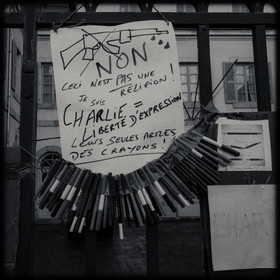 NON
CECI N'EST PAS UNE
RELIGION !
JE SUIS
CHARLIE =
LIBERTÉ D'EXPRESSION
LEURS SEULES ARMES
DES CRAYONS !
CHAR